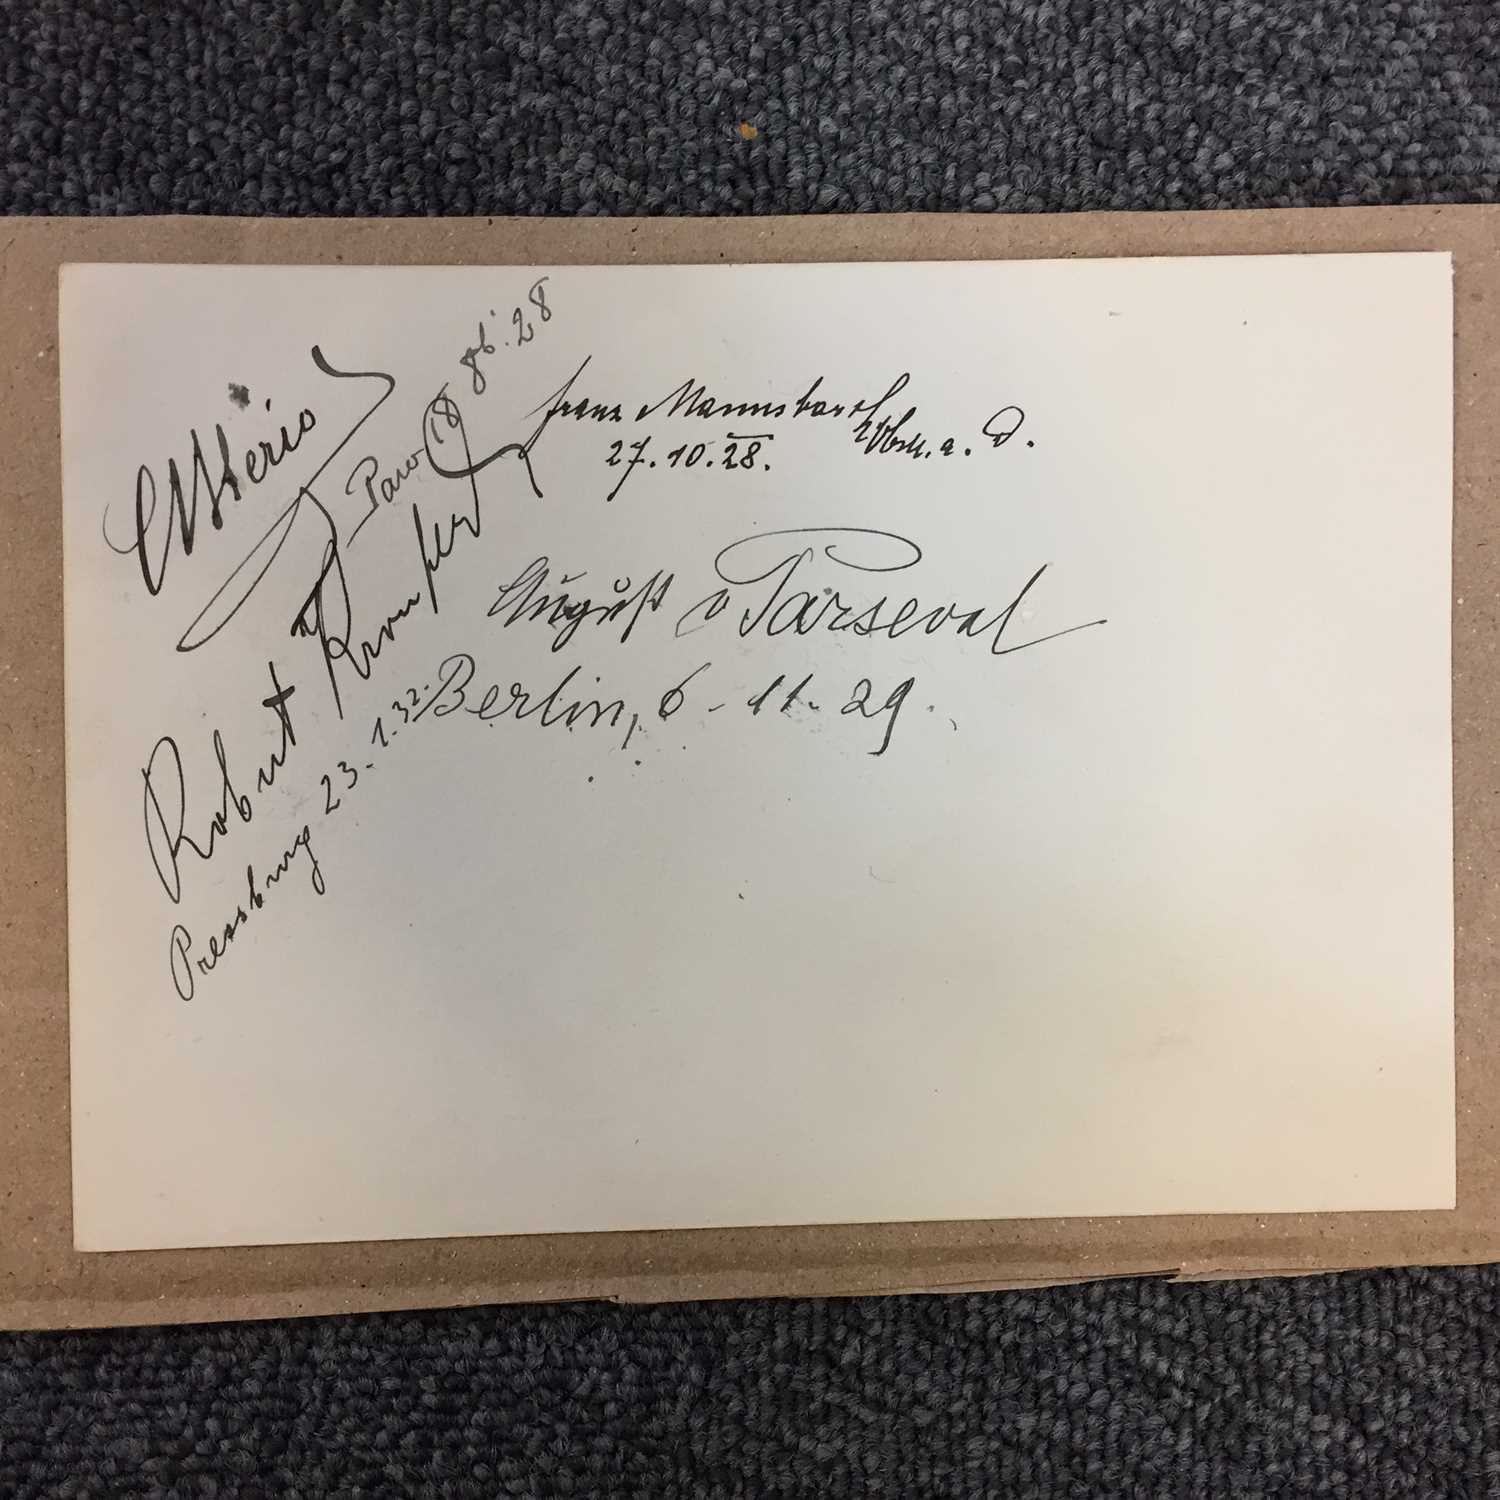 Paris 18 28
Franz Mannsbarth
27.10.28. a. D.
August v Parseval
Berlin, 6-11.29.
Robert Kronfeld
Pressburg 23.1.32.